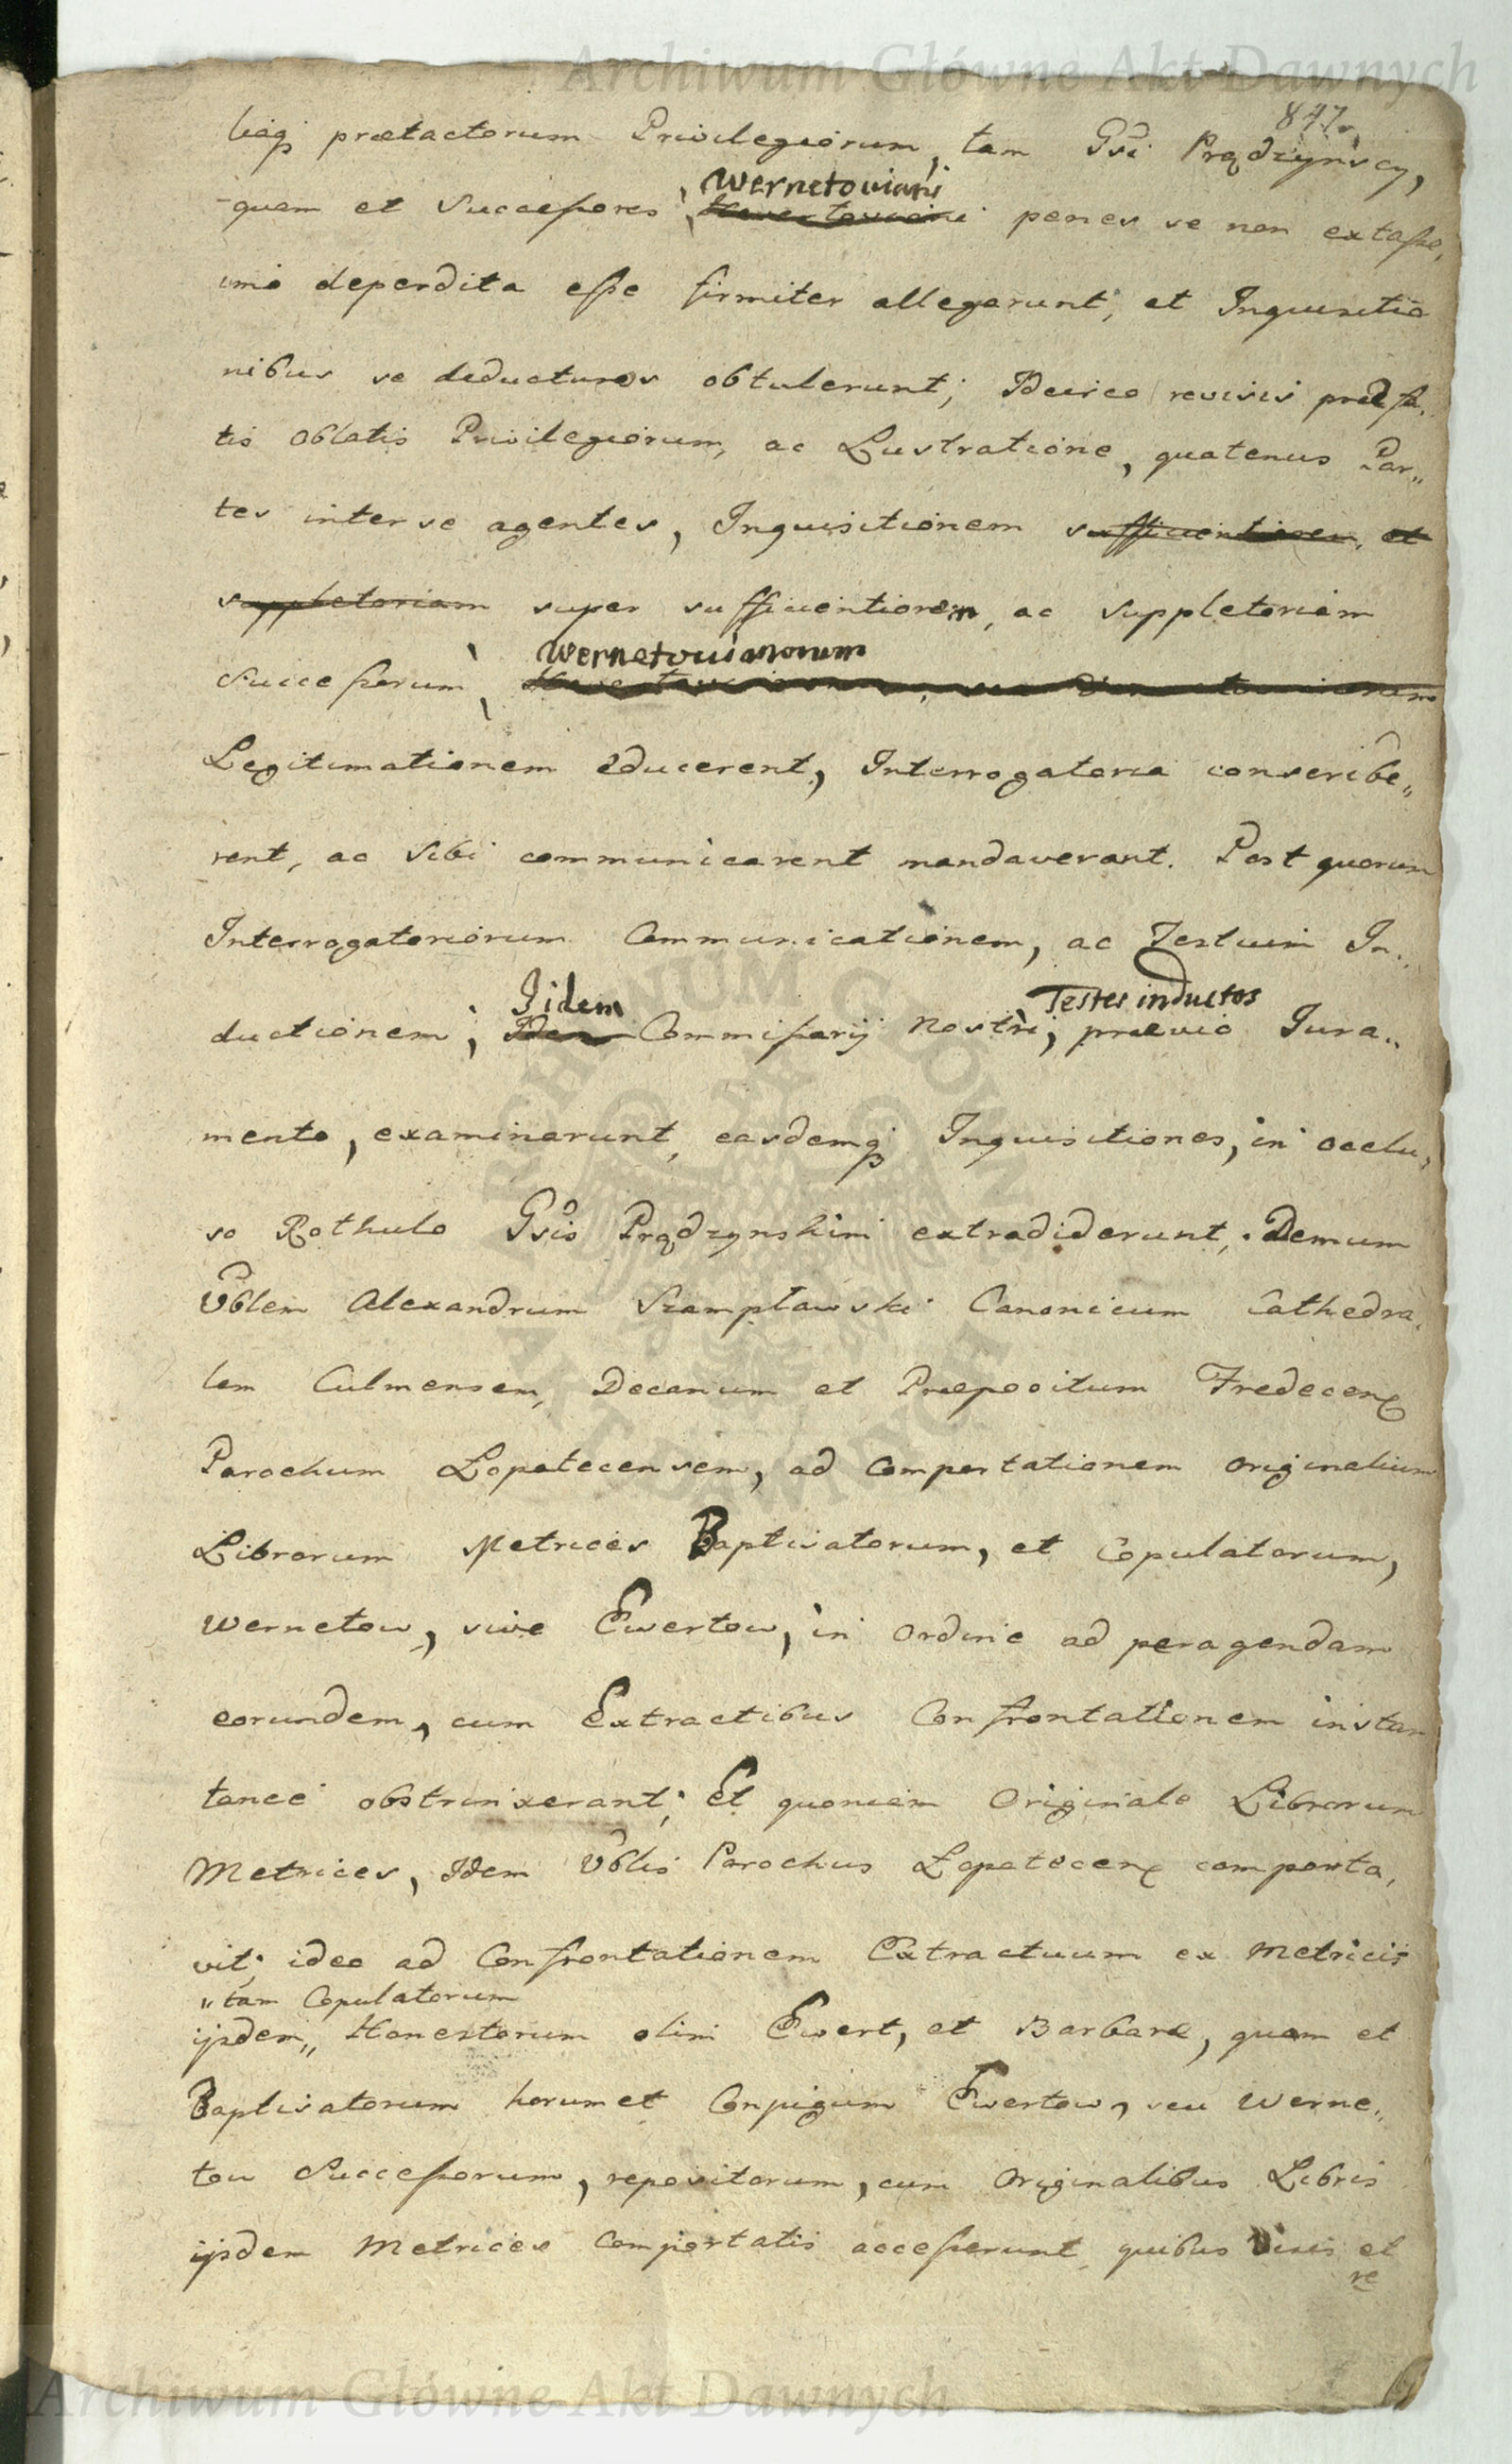 Archiwum Główne Akt Dawnych
847.
liaqꝫ prætactorum Privilegiorum, tam Gsi Prądzynscy,
quam et Successores Wernetoviani penes se non extasse,
imo deperdita esse firmiter allegarunt, et Inquisitio
nibus se deducturos obtulerunt; Idcirco revisis præfa„
tis Oblatis Privilegiorum, ac Lustratione, quatenus Par„
tes inter se agentes, Inquisitionem sufficientiorem, et
suppletoriam super sufficientiorem, ac Suppletoriam
Successorum, Wernetovianorum
Legitimationem educerent, Interrogatoria conscribe„
rent, ac Sibi communicarent mandaverant. Post quorum
Interrogatoriorum Communicationem, ac Testium In„
ductionem; Iidem Commissarij Nostri, Testes inductos prævio Jura„
mento, examinarunt, easdemqꝫ Inquisitiones, in occlu„
so Rothulo Gsis Prądzynskim extradiderunt. Demum
Vblem Alexandrum Szamplawski Canonicum Cathedra„
lem Culmensem, Decanum et Præpositum Fredecens
Parochum Lopatecensem, ad Comportationem Originalium
Librorum Metrices Baptisatorum, et Copulatorum,
Wernetow, sive Ewertow, in Ordine ad peragendam
eorundem, cum Extractibus Confrontationem instan
tanee obstrinxerant; Et quoniam Originale Librorum
Metrices, Idem Vblis Parochus Lopatocens comporta„
vit, ideo ad Confrontationem Extractuum ex Metricis
„tam Copulatorum
ijsdem„ Honestorum olim Ewert, et Barbaræ, quam et
Baptisatorum horumet Conjugum Ewertow, seu Werne„
tow Successorum, repositorum, cum Originalibus Libris
ijsdem Metrices Comportatis accesserunt, quibus Visis et
re
Archiwum Główne Akt Dawnych